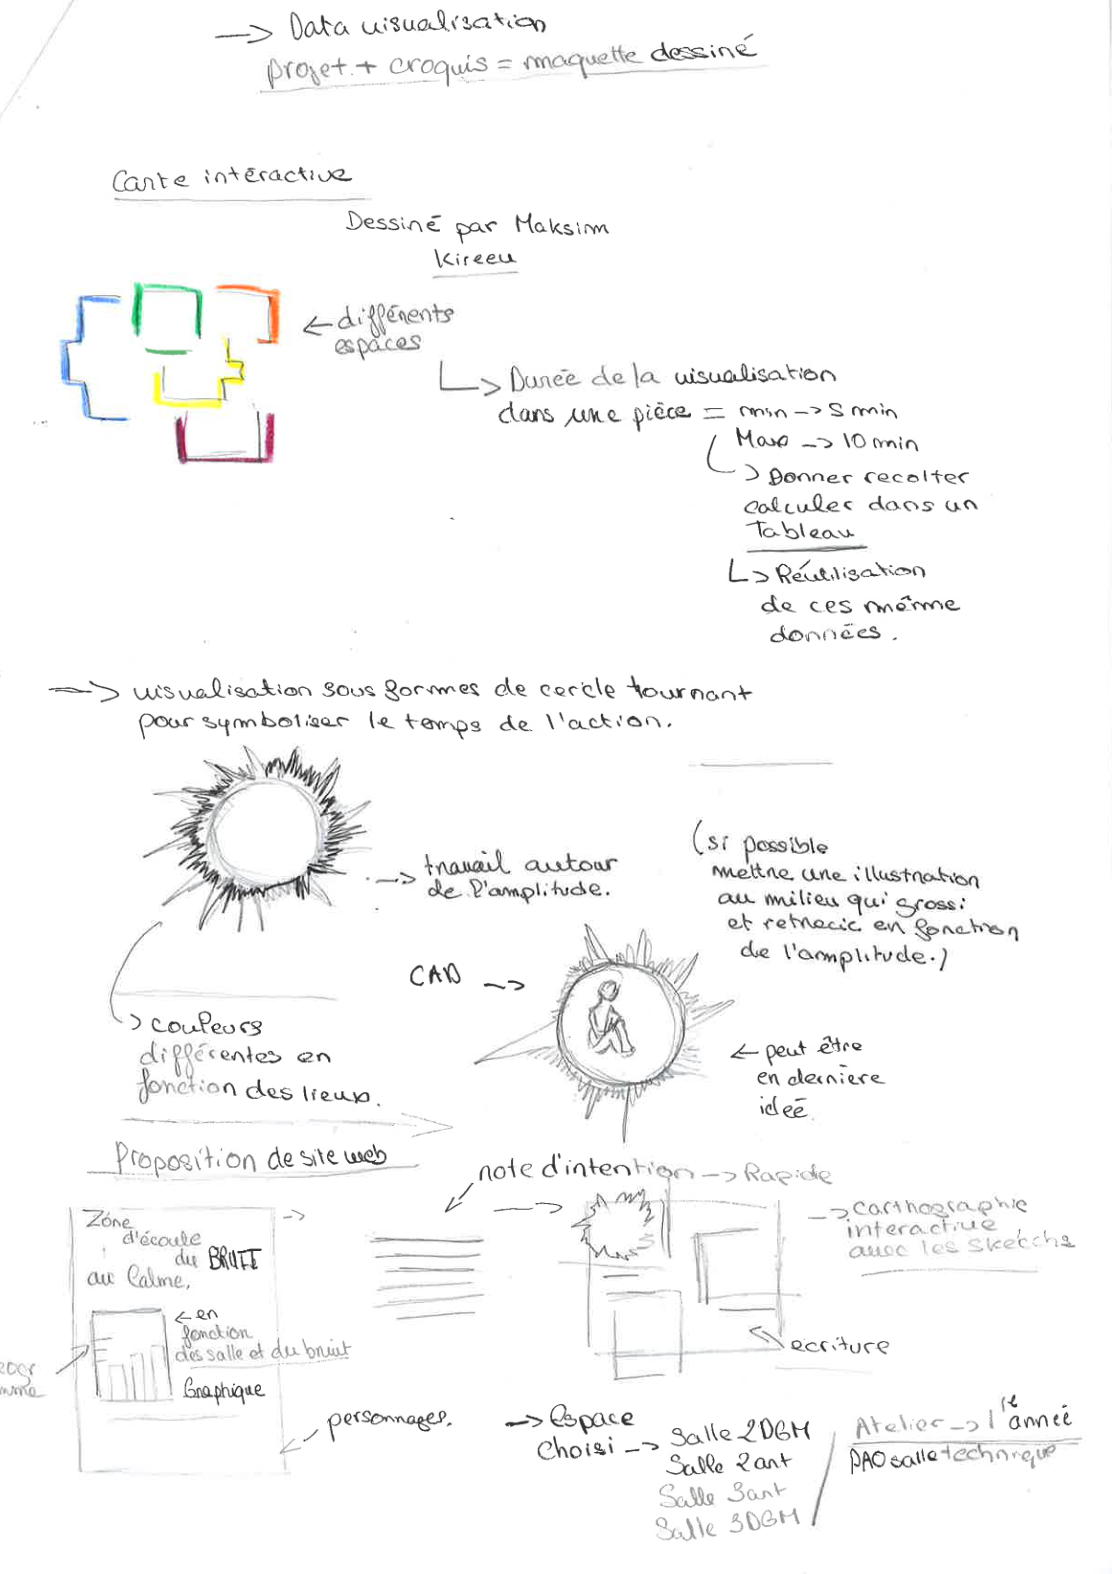 —> Data visualisation
projet + croquis = maquette dessiné
Carte intéractive
Dessiné par Maksim
Kireeu
<- différents
espaces
-> Durée de la visualisation
dans une pièce = min -> 5 min
Max -> 10 min
-> Donner recolter
calculer dans un
Tableau
-> Réutilisation
de ces même
données.
—> visualisation sous formes de cercle tournant
pour symboliser le temps de l'action.
-> travail autour
de l'amplitude.
(si possible
mettre une illustration
au milieu qui grossi
et retrecic en fonction
de l'amplitude.)
CAD ->
-> couleurs
différentes en
fonction des lieux.
<- peut être
en dernière
ideé
Proposition de site web
note d'intention -> Rapide
Zône
d'écoule
du BRUIT
au Calme,
<- en
fonction
des salle et du bruit
Graphique
-> carthographie
interactive
avec les sketchs
ecriture
personnages.
-> Espace
choisi -> Salle 2DGM
Salle 2ant
Salle 3ant
Salle 3DGM
Atelier -> 1re année
PAO salle technique